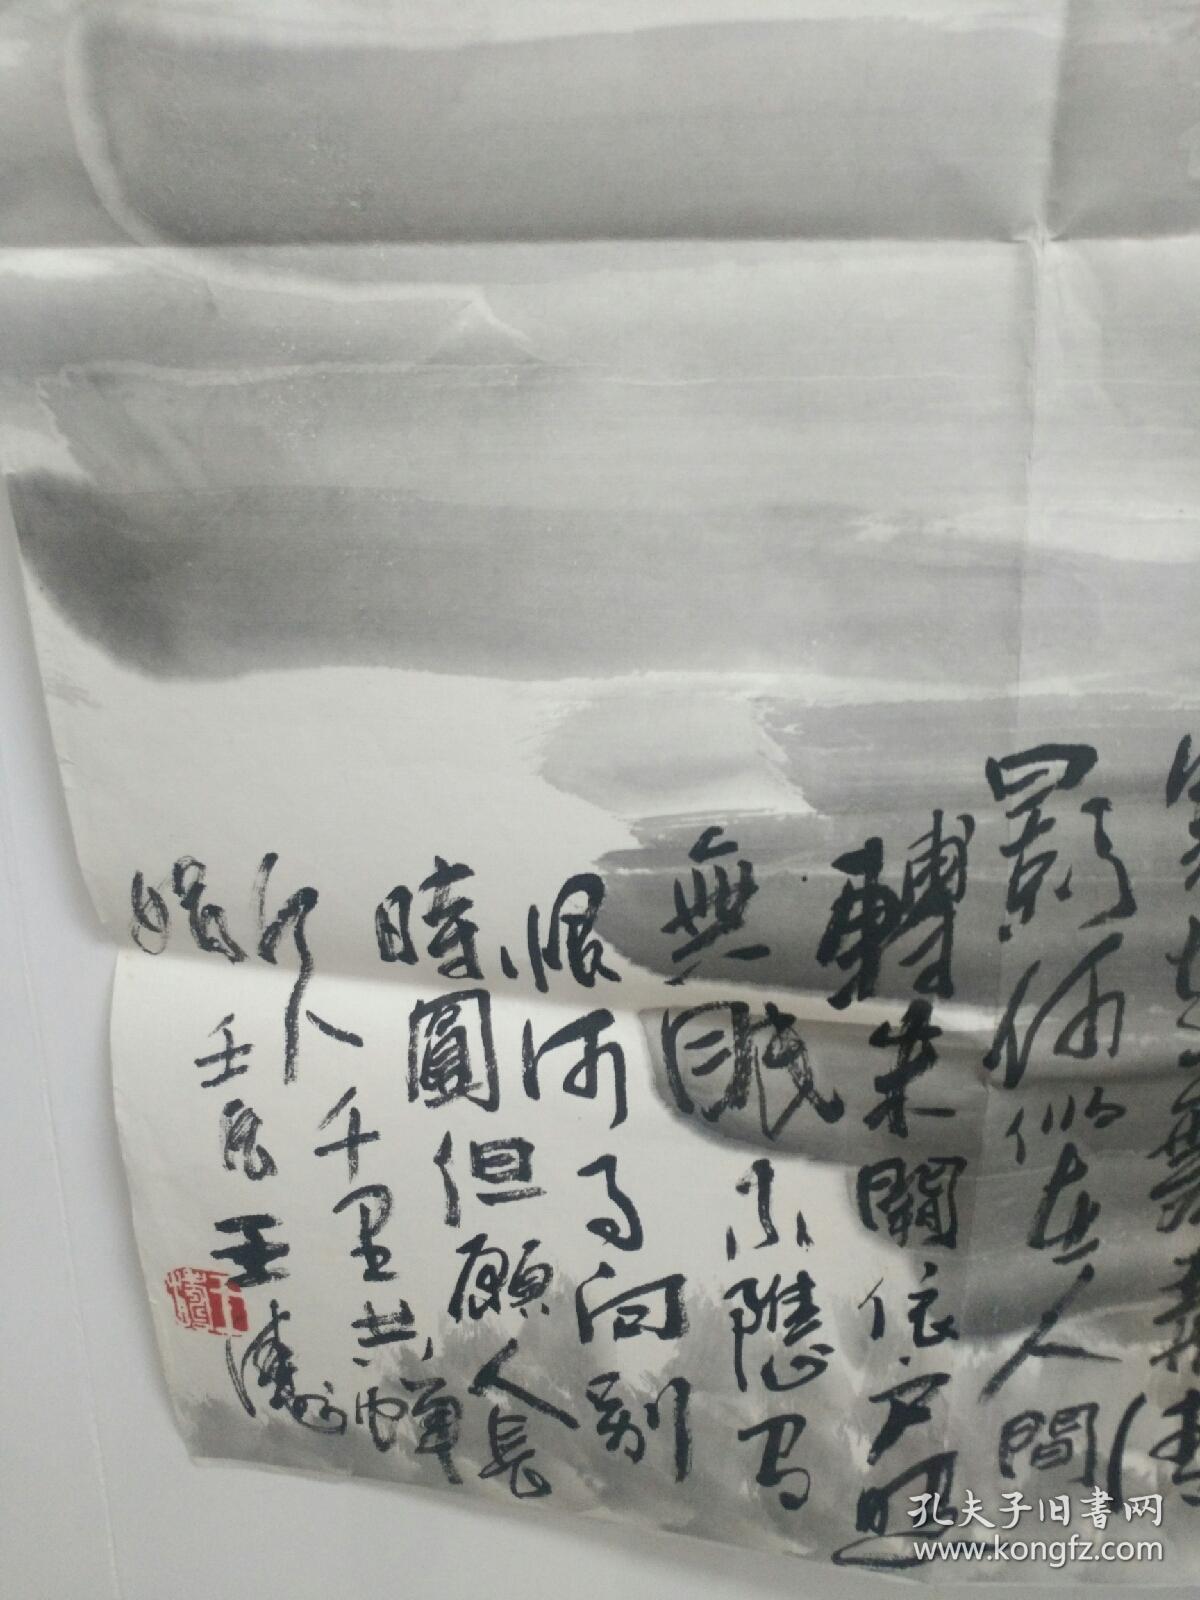 寒起舞弄清
影何似在人間
轉朱閣依戶照
無眠不應有
恨何事向別
時圓但願人長
人千里共嬋
娟
壬辰王濤
孔夫子旧書网
www.kongfz.com